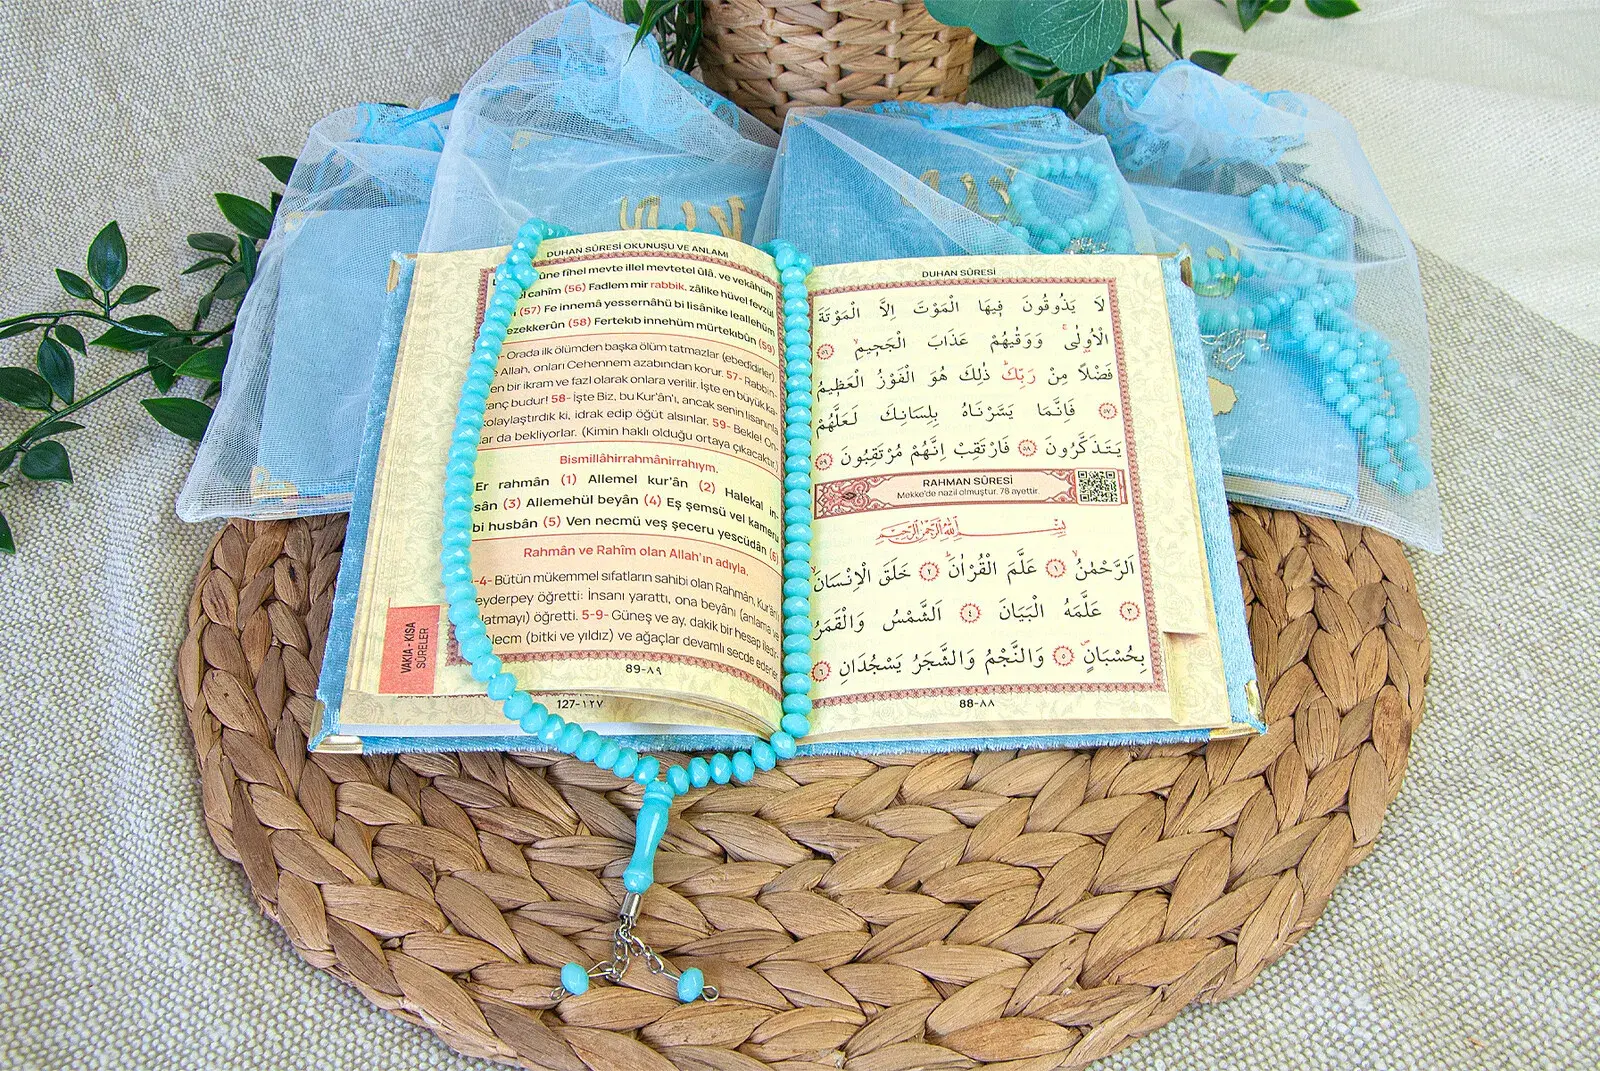 DUHAN SÛRESİ OKUNUŞU VE ANLAMI
ûne fîhel mevte illel mevtetel ûlâ, ve vekâhüm
cahîm (56) Fadlem mir rabbik, zâlike hüvel fevzul
(57) Fe innemâ yessernâhü bi lisânike leallehüm
ezekkerûn (58) Fertekıb innehüm mürtekıbûn (59)
Orada ilk ölümden başka ölüm tatmazlar (ebedîdirler)
Allah, onları Cehennem azabından korur. 57- Rabbin-
en bir ikram ve fazl olarak onlara verilir. İşte en büyük ka-
anç budur! 58- İşte Biz, bu Kur'ân'ı, ancak senin lisanınla
kolaylaştırdık ki, idrak edip öğüt alsınlar. 59- Bekle! On-
lar da bekliyorlar. (Kimin haklı olduğu ortaya çıkacaktır)
Bismillâhirrahmânirrahıym.
Er rahmân (1) Allemel kur'ân (2) Halekal in-
sân (3) Allemehül beyân (4) Eş şemsü vel kameru
bi husbân (5) Ven necmü veş şeceru yescüdân (6)
Rahmân ve Rahîm olan Allah'ın adıyla.
-4- Bütün mükemmel sıfatların sahibi olan Rahmân, Kur'ân
eyderpey öğretti: İnsanı yarattı, ona beyânı (anlama ve
latmayı) öğretti. 5-9- Güneş ve ay, dakik bir hesap iledir.
Necm (bitki ve yıldız) ve ağaçlar devamlı secde ederler
VAKIA - KISA
SÛRELER
89-٨٩
127-١٢٧
DUHAN SÛRESİ
لَا يَذُوقُونَ فِيهَا الْمَوْتَ اِلَّا الْمَوْتَةَ
الْاُولٰىۚ وَوَقٰيهُمْ عَذَابَ الْجَحِيمِۙ ٥٦
فَضْلًا مِنْ رَبِّكَۜ ذٰلِكَ هُوَ الْفَوْزُ الْعَظِيمُ
٥٧ فَاِنَّمَا يَسَّرْنَاهُ بِلِسَانِكَ لَعَلَّهُمْ
يَتَذَكَّرُونَ ٥٨ فَارْتَقِبْ اِنَّهُمْ مُرْتَقِبُونَ ٥٩
RAHMAN SÛRESİ
Mekke'de nazil olmuştur. 78 ayettir.
بِسْمِ اللّٰهِ الرَّحْمٰنِ الرَّحِيمِ
اَلرَّحْمٰنُۙ ١ عَلَّمَ الْقُرْاٰنَۜ ٢ خَلَقَ الْاِنْسَانَۙ
٣ عَلَّمَهُ الْبَيَانَ ٤ اَلشَّمْسُ وَالْقَمَرُ
بِحُسْبَانٍۖ ٥ وَالنَّجْمُ وَالشَّجَرُ يَسْجُدَانِ ٦
88-٨٨